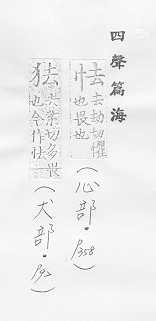 四聲篇海
怯去劫切懼也畏也（心部・P358）
㹤去業切多畏也今作怯（犬部・P92）